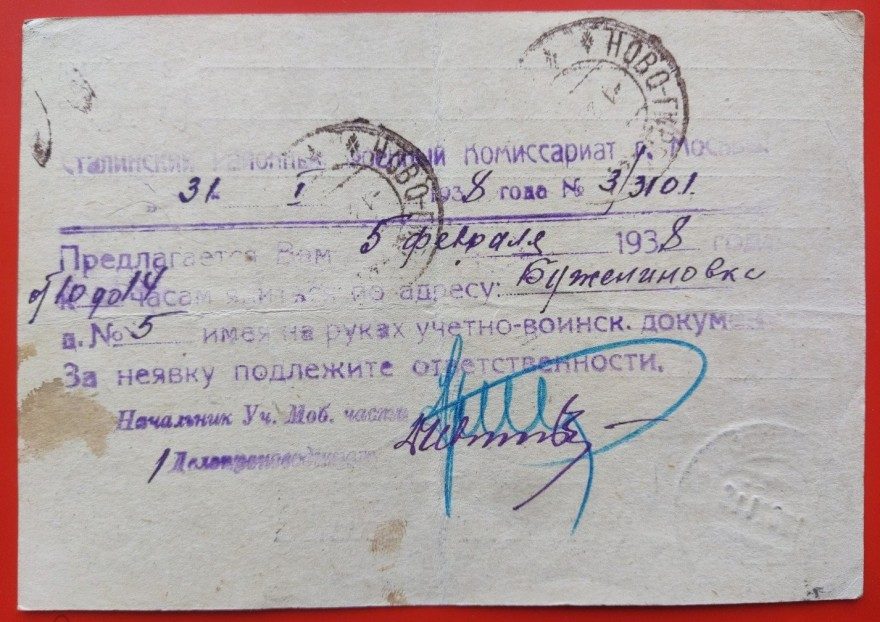 НОВО-ГИР
НОВО-ГИ
Сталинский Районный Военный Комиссариат г. Москвы
31 I 1938 года № 3/3101.
Предлагается Вам 5 февраля 1938 года
от 10 до 14 часам явиться по адресу: Бужениновка
д. № 5 имея на руках учетно-воинск. докумен
За неявку подлежите ответственности.
Начальник Уч. Моб. части
Делопроизводитель